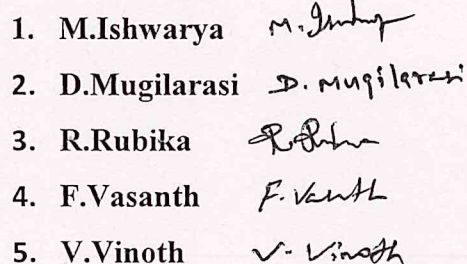 1. M.Ishwarya M.
2. D.Mugilarasi D. Mugilarasi
3. R.Rubika
4. F.Vasanth F. Vasanth
5. V.Vinoth V. Vinoth